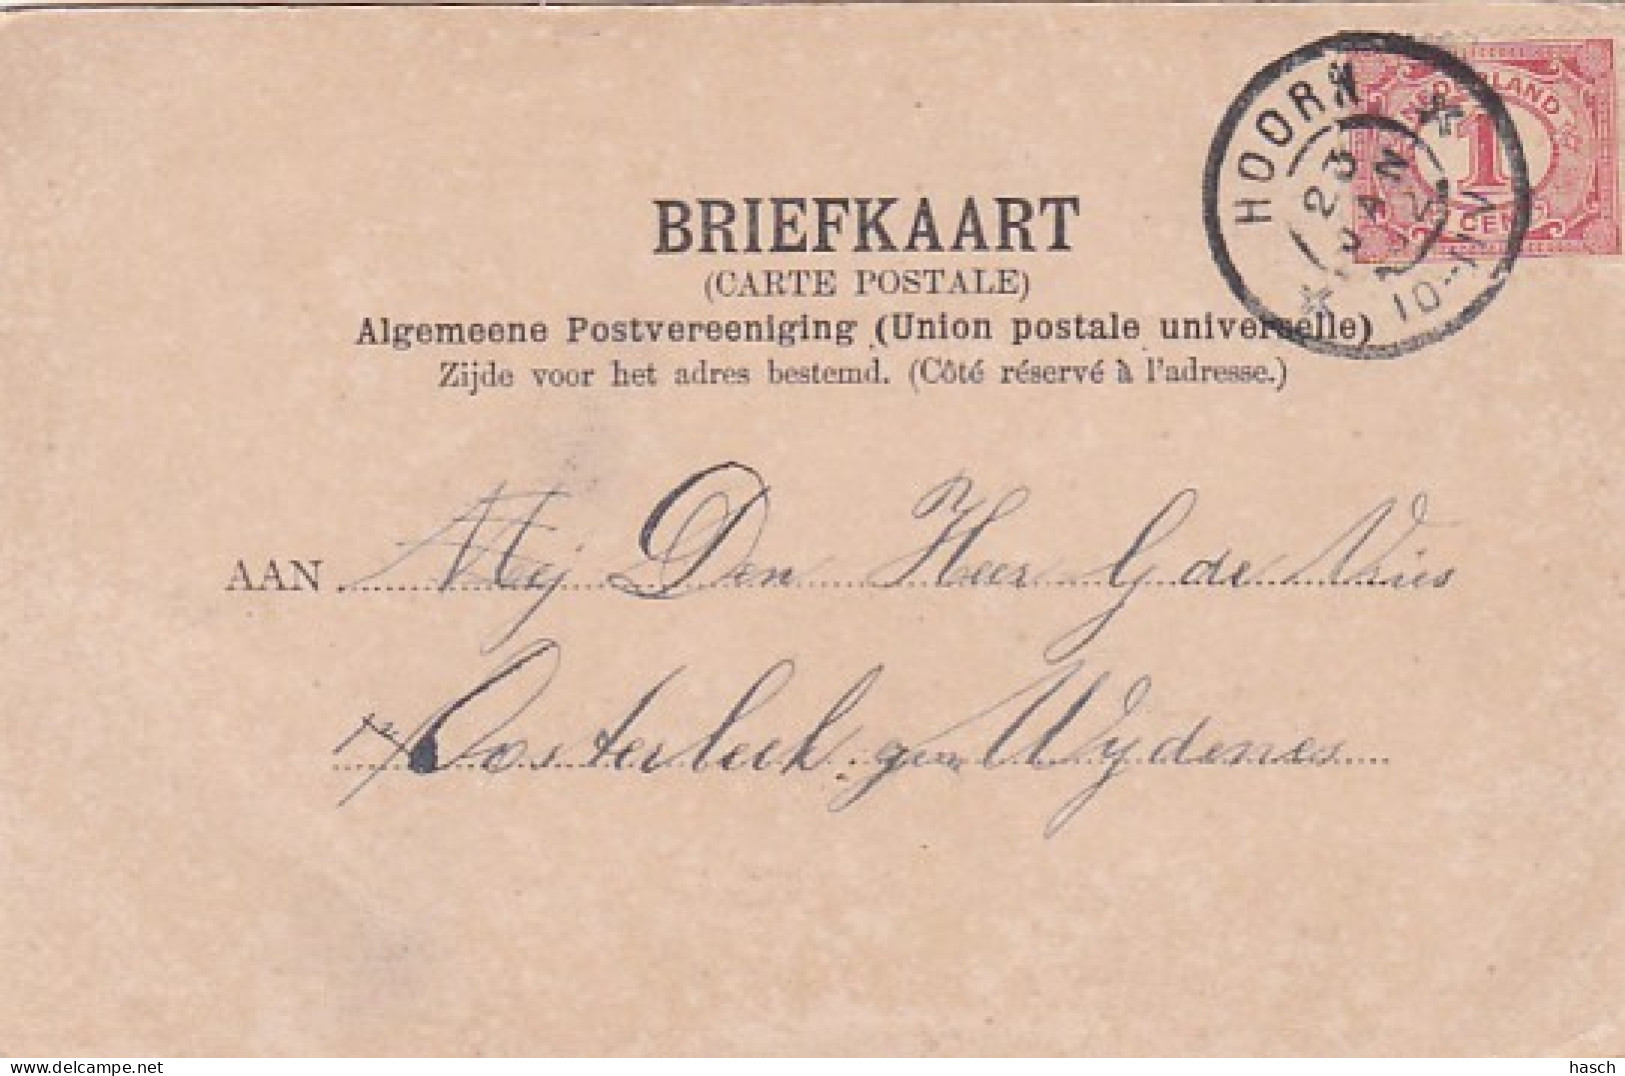 HOORN
23 JAN
10-11V
NEDERLAND
1
CENT
BRIEFKAART
(CARTE POSTALE)
Algemeene Postvereeniging (Union postale universelle)
Zijde voor het adres bestemd. (Côté réservé à l'adresse.)
AAN Mej Den Heer G de Vries
Oosterleek gem Wydenes
hasch